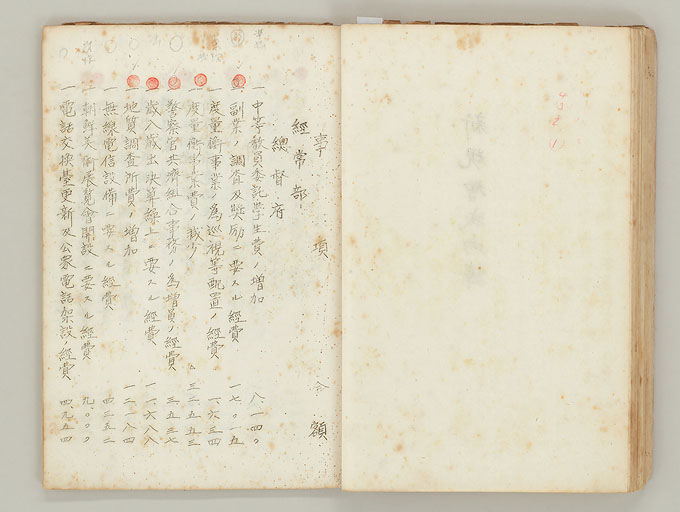 事項
金額
經常部
總督府
一 中等敎員委託學生費ノ增加 八、一四〇
一 副業ノ調査及奬励ニ要スル經費 一七、〇一五
一 度量衡事業ノ爲巡視等配置ノ經費 一、六三四
一 度量衡事業費ノ減少 △三二、五五三
一 警察官共濟組合事務ノ爲增員ノ經費 三、五三七
一 歲入歲出決算繰上ニ要スル經費 一一、六八八
一 地質調査所費ノ增加 一二、一八四
一 無線電信設備ニ要スル經費 四二、五三二
一 朝鮮美術展覧會開設ニ要スル經費 九、〇〇〇
一 電話交換臺更新及公衆電話架設ノ經費 四、九五四